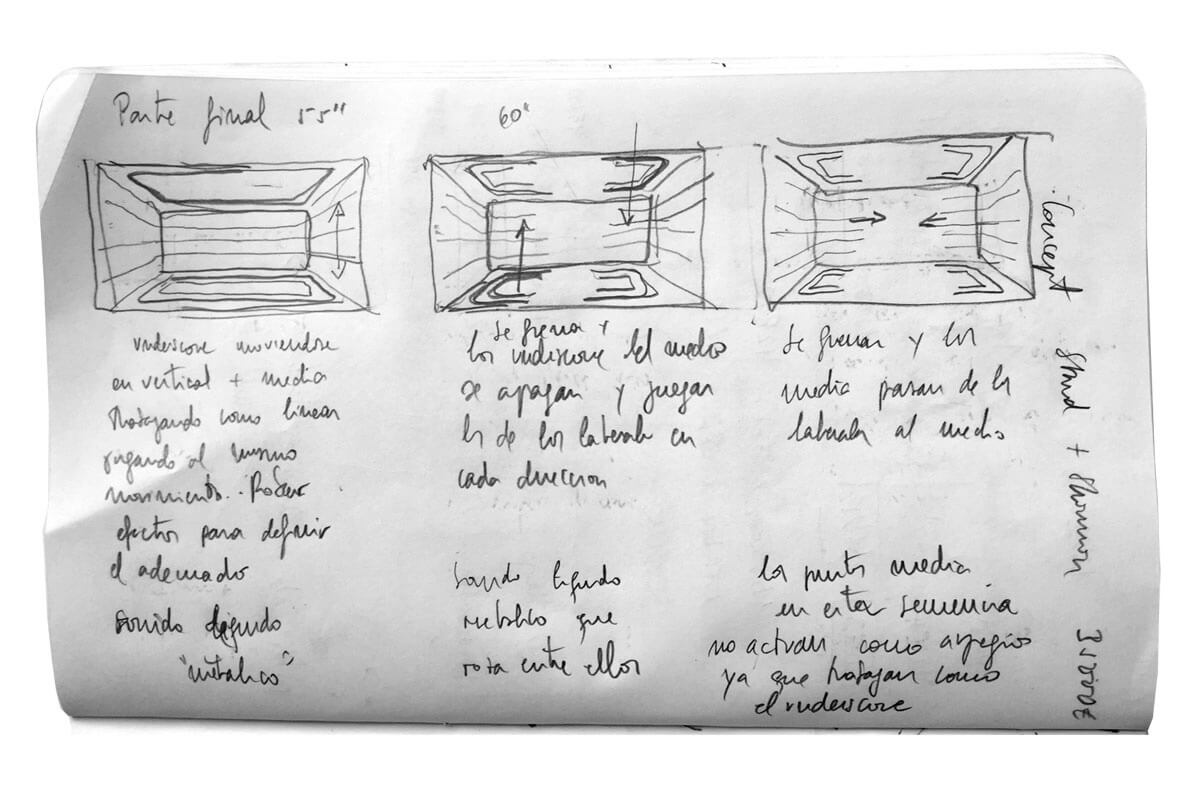 Parte final 55"
underscore moviendose
en vertical + media
trabajando como linear
jugando al mismo
movimiento. Probar
efectos para definir
el adecuado
sonido líquido
"metálico"
60"
se frenan y
los underscore del medio
se apagan y juegan
los de los laterales en
cada direccion
sonido líquido
metálico que
rota entre ellos
se frenan y los
media pasan de los
laterales al medio
los puntos media
en esta secuencia
no actuan como arpegio
ya que trabajan como
el underscore
Concept Stand +